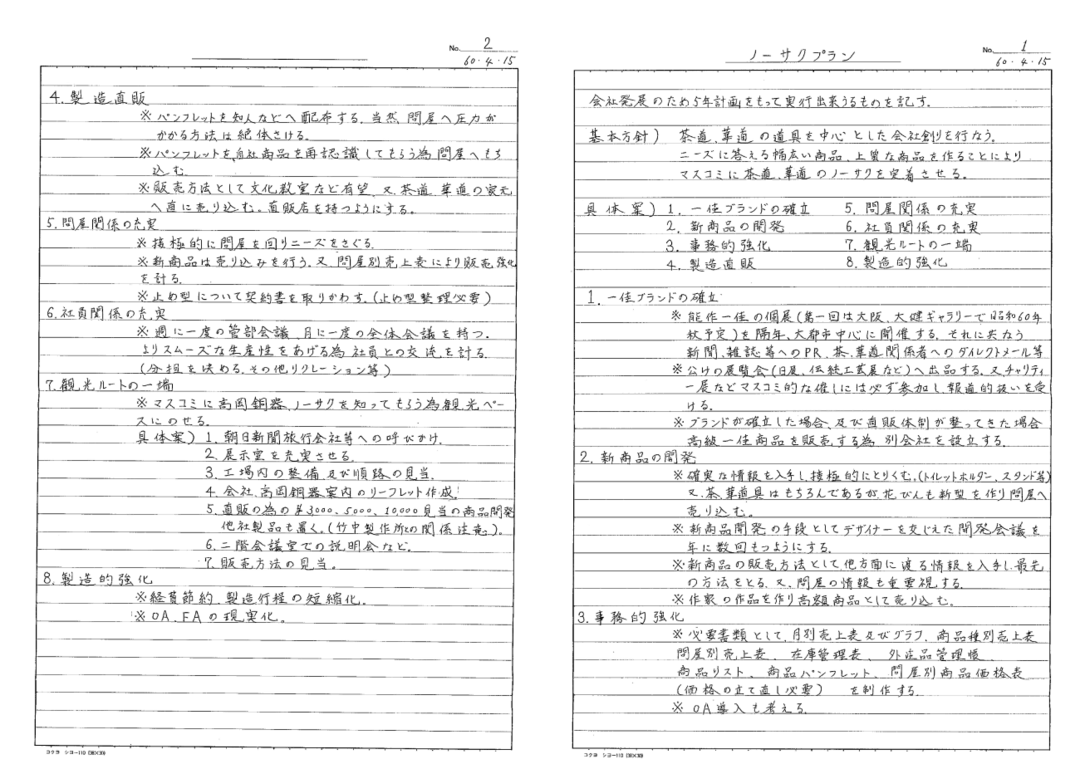 ノーサクプラン
No. 1
60・4・15
会社発展のため5年計画をもって実行出来うるものを記す.
基本方針) 茶道,華道の道具を中心とした会社創りを行なう.
ニーズに答える幅広い商品,上質な商品を作ることにより
マスコミに茶道,華道のノーサクを定着させる.
具体案) 1. 一佳ブランドの確立 5. 問屋関係の充実
2. 新商品の開発 6. 社員関係の充実
3. 事務的強化 7. 観光ルートの一場
4. 製造直販 8. 製造的強化
1. 一佳ブランドの確立
※ 能作一佳の個展(第一回は大阪,大健ギャラリーで昭和60年
秋予定)を隔年,大都市中心に開催する.それに共なう
新聞,雑誌等へのPR,茶,華道関係者へのダイレクトメール等
※公けの展覧会(日展,伝統工芸展など)へ出品する.又チャリティ
ー展などマスコミ的な催しには必ず参加し,報道的扱いを受
ける.
※ブランドが確立した場合,及び直販体制が整ってきた場合
高級一佳商品を販売する為別会社を設立する.
2. 新商品の開発
※確実な情報を入手し,接極的にとりくむ.(トイレットホルダー,スタンド等)
又,茶,華道具はもちろんであるが,花びんも新型を作り問屋へ
売り込む.
※新商品開発の手段としてデザイナーを交じえた開発会議を
年に数回もつようにする.
※新商品の販売方法として他方面に渡る情報を入手し最先
の方法をとる.又,問屋の情報も重要視する.
※作家の作品を作り高額商品として売り込む.
3. 事務的強化
※必要書類として,月別売上表及びグラフ,商品種別売上表
問屋別売上表、在庫管理表、外注品管理帳
商品リスト、商品パンフレット、問屋別商品価格表
(価格の立て直し必要) を制作する.
※ OA導入も考える.
コクヨ シヨ-110
No. 2
60・4・15
4. 製造直販
※パンフレットを知人などへ配布する.当然,問屋へ圧力が
かかる方法は絶体さける.
※パンフレットを自社商品を再認識してもらう為問屋へもち
込む.
※販売方法として文化教室など有望.又,茶道,華道の家元
へ直に売り込む。直販店を持つようにする.
5. 問屋関係の充実
※接極的に問屋を回りニーズをさぐる.
※新商品は売り込みを行う.又,問屋別売上表により販売強化
を計る.
※止め型について契約書を取りかわす.(止め型整理必要)
6. 社員関係の充実
※週に一度の管部会議,月に一度の全体会議を持つ.
よりスムーズな生産性をあげる為社員との交流を計る.
(分担を決める,その他リクレーション等)
7. 観光ルートの一場
※マスコミに高岡銅器,ノーサクを知ってもらう為観光ベー
スにのせる.
具体案) 1. 朝日新聞旅行会社等への呼びかけ.
2. 展示室を充実させる.
3. 工場内の整備及び順路の見当.
4. 会社,高岡銅器案内のリーフレット作成.
5. 直販の為の¥3000、5000、10,000見当の商品開発
他社製品も置く.(竹中製作所との関係注意).
6. 二階会議室での説明会など.
7. 販売方法の見当.
8. 製造的強化
※経費節約,製造行程の短縮化.
※OA,FAの現実化。
コクヨ シヨ-110